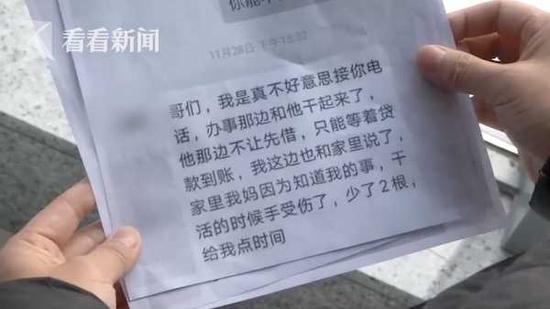 看看新闻
你能不
11月28日 下午
哥们，我是真不好意思接你电
话，办事那边和他干起来了，
他那边不让先借，只能等着贷
款到账，我这边也和家里说了，
家里我妈因为知道我的事，干
活的时候手受伤了，少了2根，
给我点时间